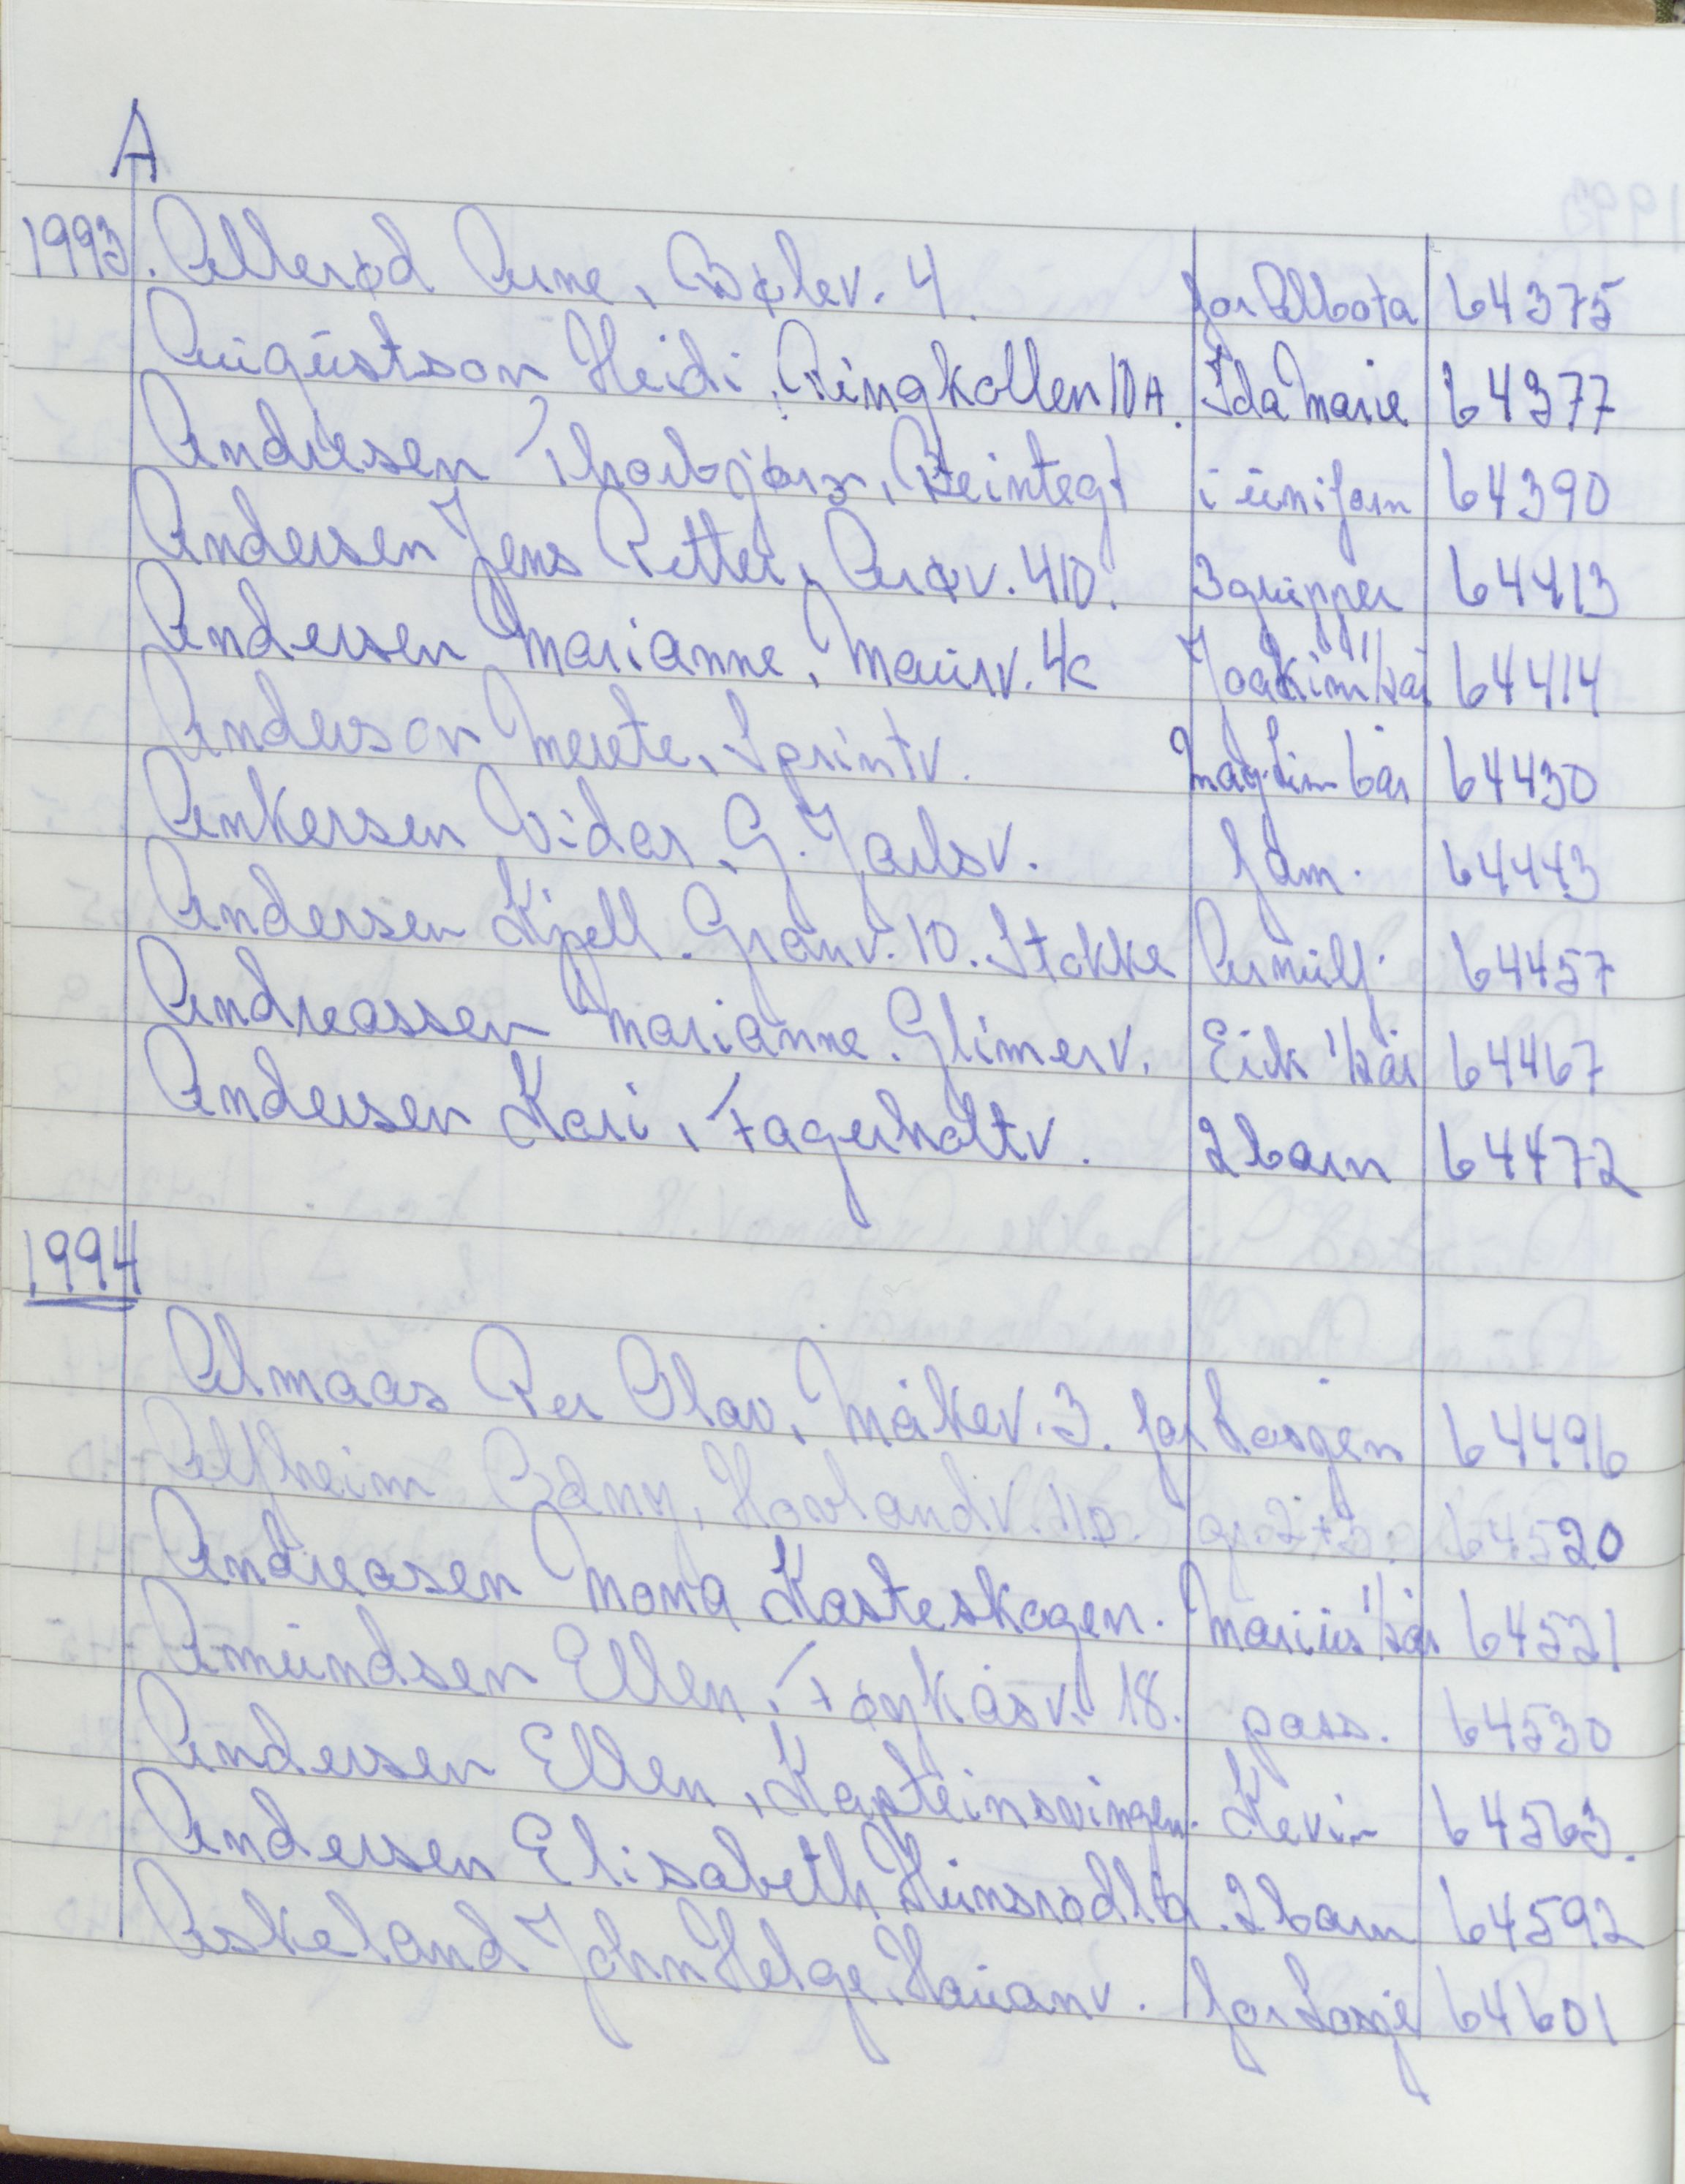 A
1993. Allerød Arne, Bølev. 4. for Albota 64375
Augustson Heidi, Ringkollen 10A. Ida Marie 64377
Andresen Thorbjørn, Beintegt i uniform 64390
Andersen Jens Petter, Årøv. 41D. 3 grupper 64413
Andersen Marianne, Maurv. 4c Joakim 1/2 år 64414
Anderson Merete, Sprintv. May Lin 6 år 64430
Ankersen Vidar, G. Jarlsv. fam. 64443
Andersen Kjell. Granv. 10. Stokke Arnulf 64457
Andreassen Marianne. Glimerv. Eirik 1/2 år 64467
Andersen Kari, Fagerholtv. 2 barn 64472
1994
Almaas Per Olav, Måkev. 3. for Losjen 64496
Alfheim Hovlandv. 110. 64520
Andreasen Mona Kasteskogen. Marius 1/2 år 64521
Amundsen Ellen, Føykåsv. 18. pass. 64530
Andersen Ellen, Kapteinsvingen. Kevin 64563.
Andersen Elisabeth, 2 barn 64592
Askeland John Helge, Hauanv. for Losje 64601